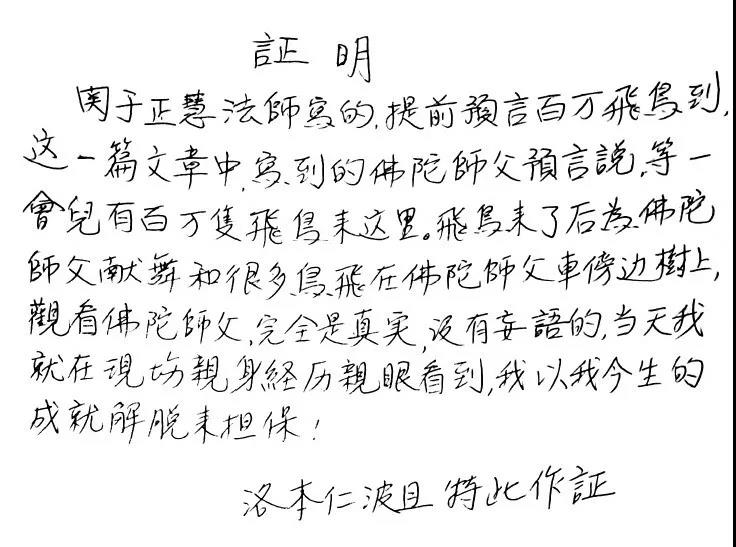 証明
関于正慧法師寫的,提前預言百万飛鳥到,
这一篇文章中,寫到的佛陀師父預言說,等一
會兒有百万隻飛鳥来这里。飛鳥来了后為佛陀
師父献舞和很多鳥飛在佛陀師父車傍边樹上,
觀看佛陀師父,完全是真実,没有妄語的,当天我
就在現场親身経历親眼看到,我以我今生的
成就解脱来担保!
洛本仁波且 特此作証